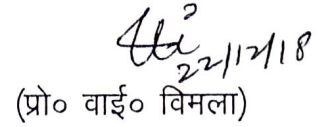 22/12/18
(प्रो० वाई० विमला)